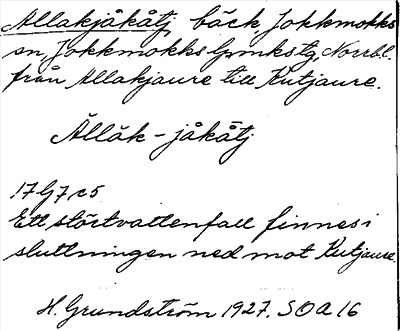 Allakjåkåtj, bäck, Jokkmokks
sn, Jokkmokks lpmkstg, Norrbl.
från Allakjaure till Kutjaure.
Ållåk-jåkåtj
17 G 7 c 5
Ett störtvattenfall finnes i
sluttningen ned mot Kutjaure.
H. Grundström 1927. SOA 16